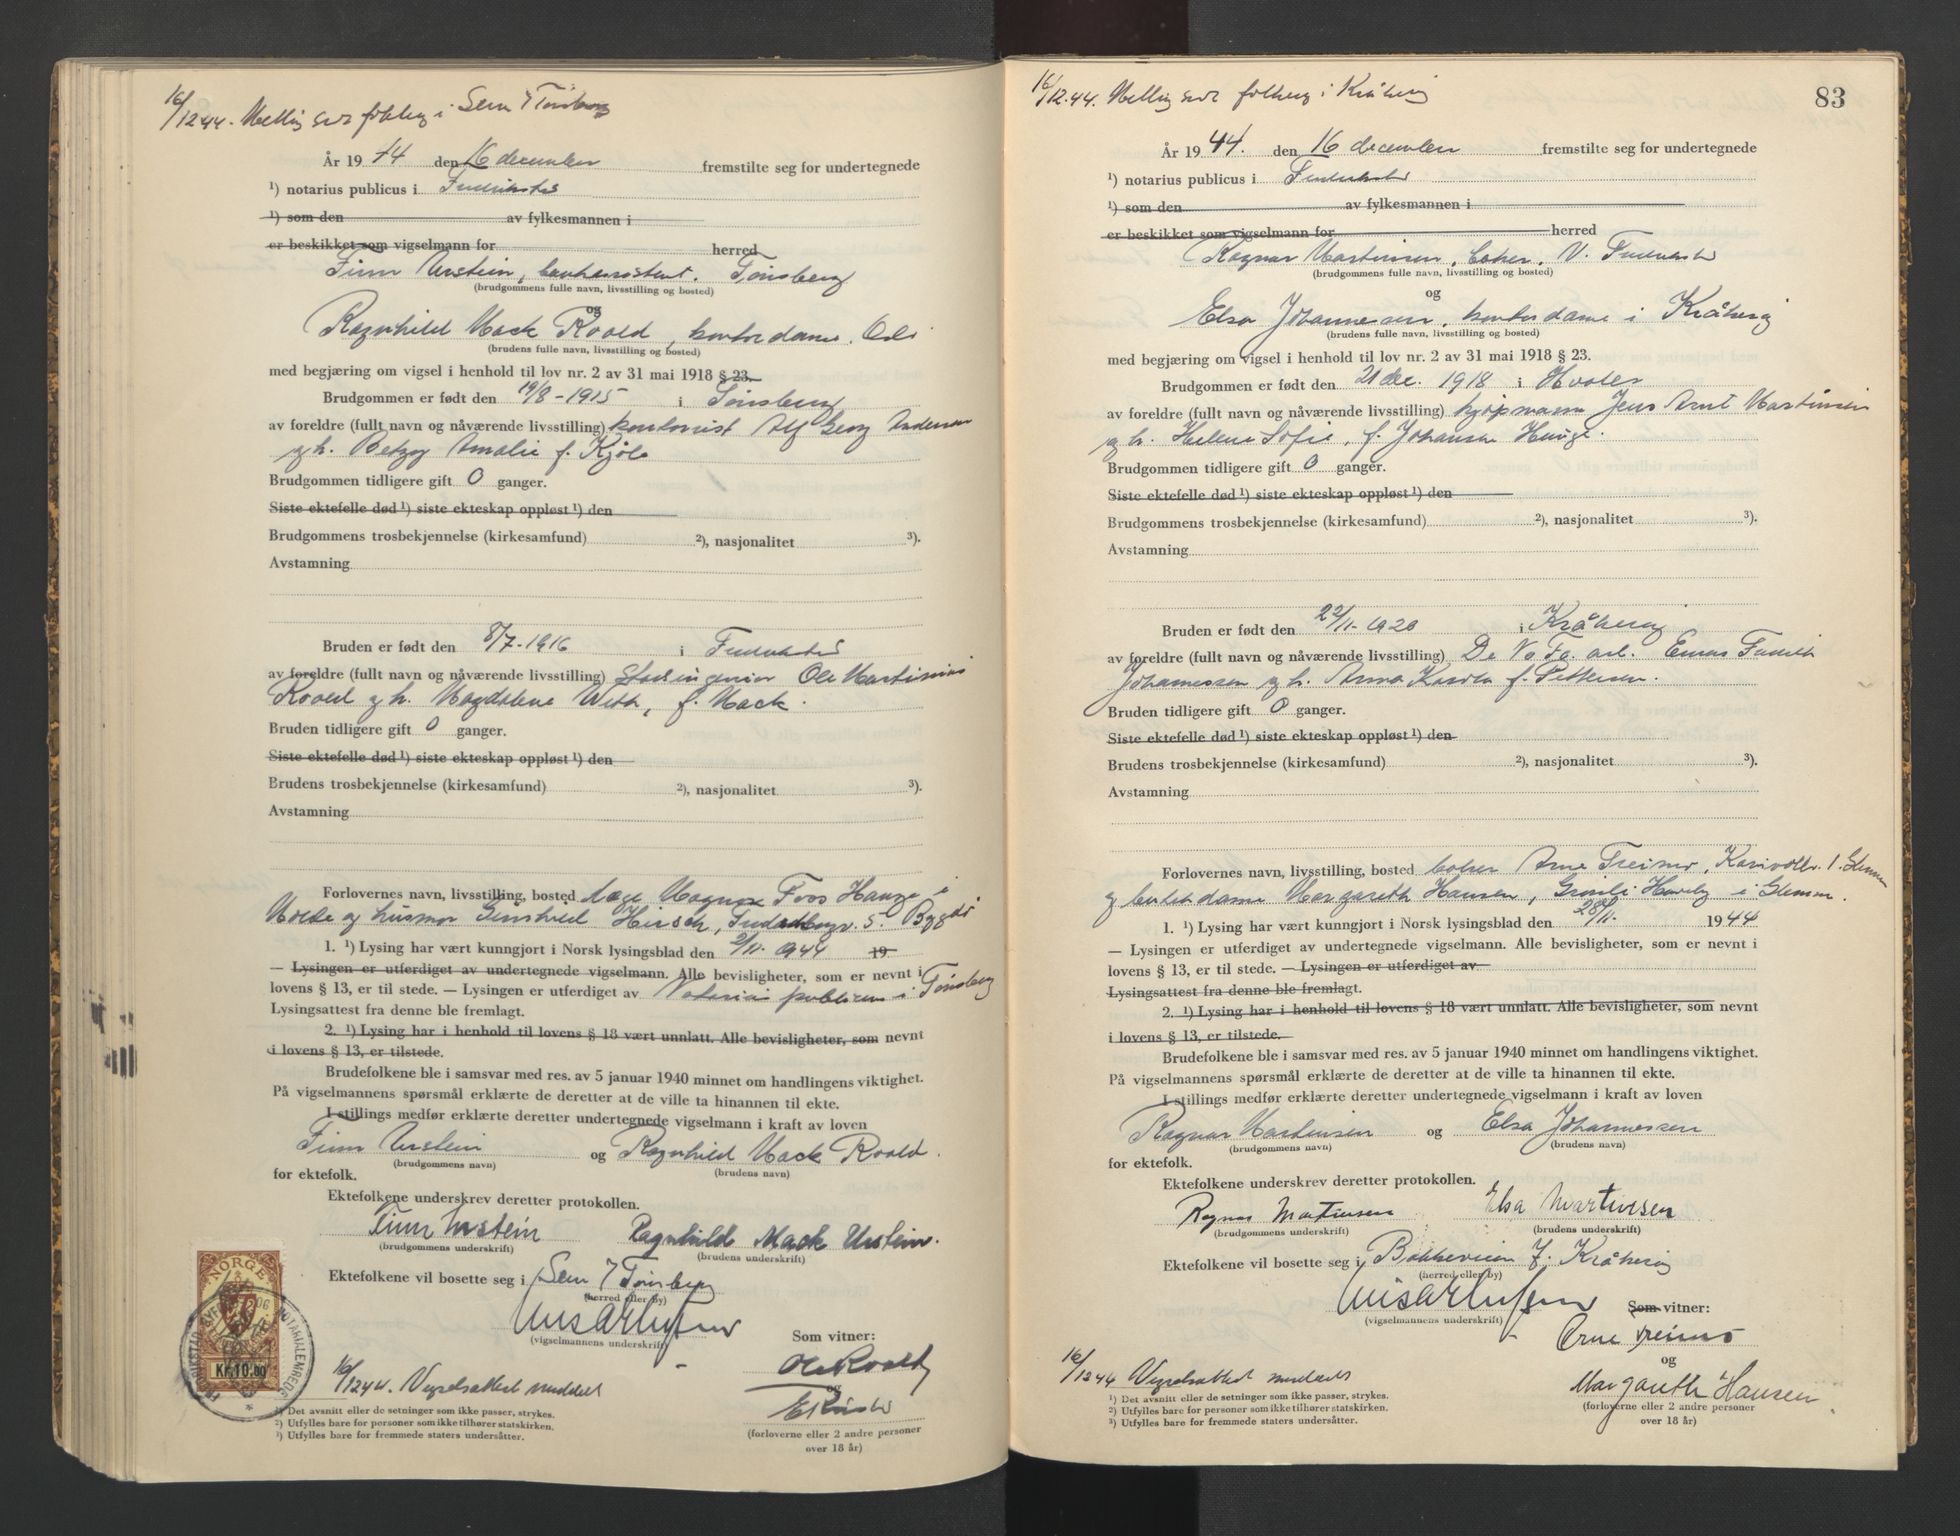 16/12.44. Melding sendt folkereg i Sem / Tønsberg
År 19 44 den 16 december fremstilte seg for undertegnede
¹) notarius publicus i Fredrikstad
¹) som den av fylkesmannen i
er beskikket som vigselmann for herred
Finn Urstein, Tønsberg
(brudgommens fulle navn, livsstilling og bosted)
og
Ragnhild Mack Roald, kontordame, Oslo
(brudens fulle navn, livsstilling og bosted)
med begjæring om vigsel i henhold til lov nr. 2 av 31 mai 1918 § 23.
Brudgommen er født den 19/8 - 1915 i Tønsberg
av foreldre (fullt navn og nåværende livsstilling) kontorist Alf Georg Andersen
og h. Betzy Amalie f. Kjøle
Brudgommen tidligere gift 0 ganger.
Siste ektefelle død ¹) siste ekteskap oppløst ¹) den
Brudgommens trosbekjennelse (kirkesamfund) ²), nasjonalitet ³).
Avstamning
Bruden er født den 8/7 - 1916 i Fredrikstad
av foreldre (fullt navn og nåværende livsstilling) Stadsingeniør Ole Martinius
Roald og h. Magdalene With, f. Mack.
Bruden tidligere gift 0 ganger.
Siste ektefelle død ¹) siste ekteskap oppløst ¹) den
Brudens trosbekjennelse (kirkesamfund) ²), nasjonalitet ³).
Avstamning
Forlovernes navn, livsstilling, bosted læge Magnus Foss Hauge i
Molde og husmor Hirsch, 5. Bygdø
1. ¹) Lysing har vært kunngjort i Norsk lysingsblad den 2/11. 1944 19
— Lysingen er utferdiget av undertegnede vigselmann. Alle bevisligheter, som er nevnt i
lovens § 13, er til stede. — Lysingen er utferdiget av Notarius publicus i Tønsberg
Lysingsattest fra denne ble fremlagt.
2. ¹) Lysing har i henhold til lovens § 18 vært unnlatt. Alle bevisligheter, som nevnt
i lovens § 13, er tilstede.
Brudefolkene ble i samsvar med res. av 5 januar 1940 minnet om handlingens viktighet.
På vigselmannens spørsmål erklærte de deretter at de ville ta hinannen til ekte.
I stillings medfør erklærte deretter undertegnede vigselmann i kraft av loven
Finn Urstein og Ragnhild Mack Roald.
(brudgommens navn) (brudens navn)
for ektefolk.
Ektefolkene underskrev deretter protokollen.
Finn Urstein Ragnhild Mack Urstein.
(brudgommens underskrift) (brudens underskrift)
Ektefolkene vil bosette seg i Sem / Tønsberg
(herred eller by)
(vigselmannens underskrift)
Som vitner:
Ole Roald
og
NORGE
Kr. 10.00
16/12 44. Vigselsattest meddelt
¹) Det avsnitt eller de setninger som ikke passer, strykes.
²) Utfylles bare for personer som ikke tilhører statskirken.
³) Utfylles bare for fremmede staters undersåtter.
(forloverne eller 2 andre personer
over 18 år)
83
16/12.44. Melding sendt folkereg i Kråkerøy
År 19 44. den 16 december fremstilte seg for undertegnede
¹) notarius publicus i Fredrikstad
¹) som den av fylkesmannen i
er beskikket som vigselmann for herred
Ragnar Martinsen, V. Fredrikstad
(brudgommens fulle navn, livsstilling og bosted)
og
Elsa Johannesen, kontordame i Kråkerøy
(brudens fulle navn, livsstilling og bosted)
med begjæring om vigsel i henhold til lov nr. 2 av 31 mai 1918 § 23.
Brudgommen er født den 21 dec. 1918 i Hvaler
av foreldre (fullt navn og nåværende livsstilling) kjøpmann Jens Arnt Martinsen
og h. Helene Sofie, f. Johansen Hauge.
Brudgommen tidligere gift 0 ganger.
Siste ektefelle død ¹) siste ekteskap oppløst ¹) den
Brudgommens trosbekjennelse (kirkesamfund) ²), nasjonalitet ³).
Avstamning
Bruden er født den 22/11- 1920 i Kråkerøy
av foreldre (fullt navn og nåværende livsstilling) De No Fa arb.
Johannessen og h. Anna f. Pettersen.
Bruden tidligere gift 0 ganger.
Siste ektefelle død ¹) siste ekteskap oppløst ¹) den
Brudens trosbekjennelse (kirkesamfund) ²), nasjonalitet ³).
Avstamning
Forlovernes navn, livsstilling, bosted Arne Treimo, 1. Glemmen
og Margareth Hansen, i Glemmen.
1. ¹) Lysing har vært kunngjort i Norsk lysingsblad den 28/11. 1944
— Lysingen er utferdiget av undertegnede vigselmann. Alle bevisligheter, som er nevnt i
lovens § 13, er til stede. — Lysingen er utferdiget av
Lysingsattest fra denne ble fremlagt.
2. ¹) Lysing har i henhold til lovens § 18 vært unnlatt. Alle bevisligheter, som nevnt
i lovens § 13, er tilstede.
Brudefolkene ble i samsvar med res. av 5 januar 1940 minnet om handlingens viktighet.
På vigselmannens spørsmål erklærte de deretter at de ville ta hinannen til ekte.
I stillings medfør erklærte deretter undertegnede vigselmann i kraft av loven
Ragnar Martinsen og Elsa Johannessen
(brudgommens navn) (brudens navn)
for ektefolk.
Ektefolkene underskrev deretter protokollen.
Ragnar Martinsen Elsa Martinsen
(brudgommens underskrift) (brudens underskrift)
Ektefolkene vil bosette seg i Bakkeveien 7. Kråkerøy
(herred eller by)
(vigselmannens underskrift)
Som vitner:
Arne Treimo
og
Margareth Hansen
16/12 44 Vigselsattest meddelt
¹) Det avsnitt eller de setninger som ikke passer, strykes.
²) Utfylles bare for personer som ikke tilhører statskirken.
³) Utfylles bare for fremmede staters undersåtter.
(forloverne eller 2 andre personer
over 18 år)